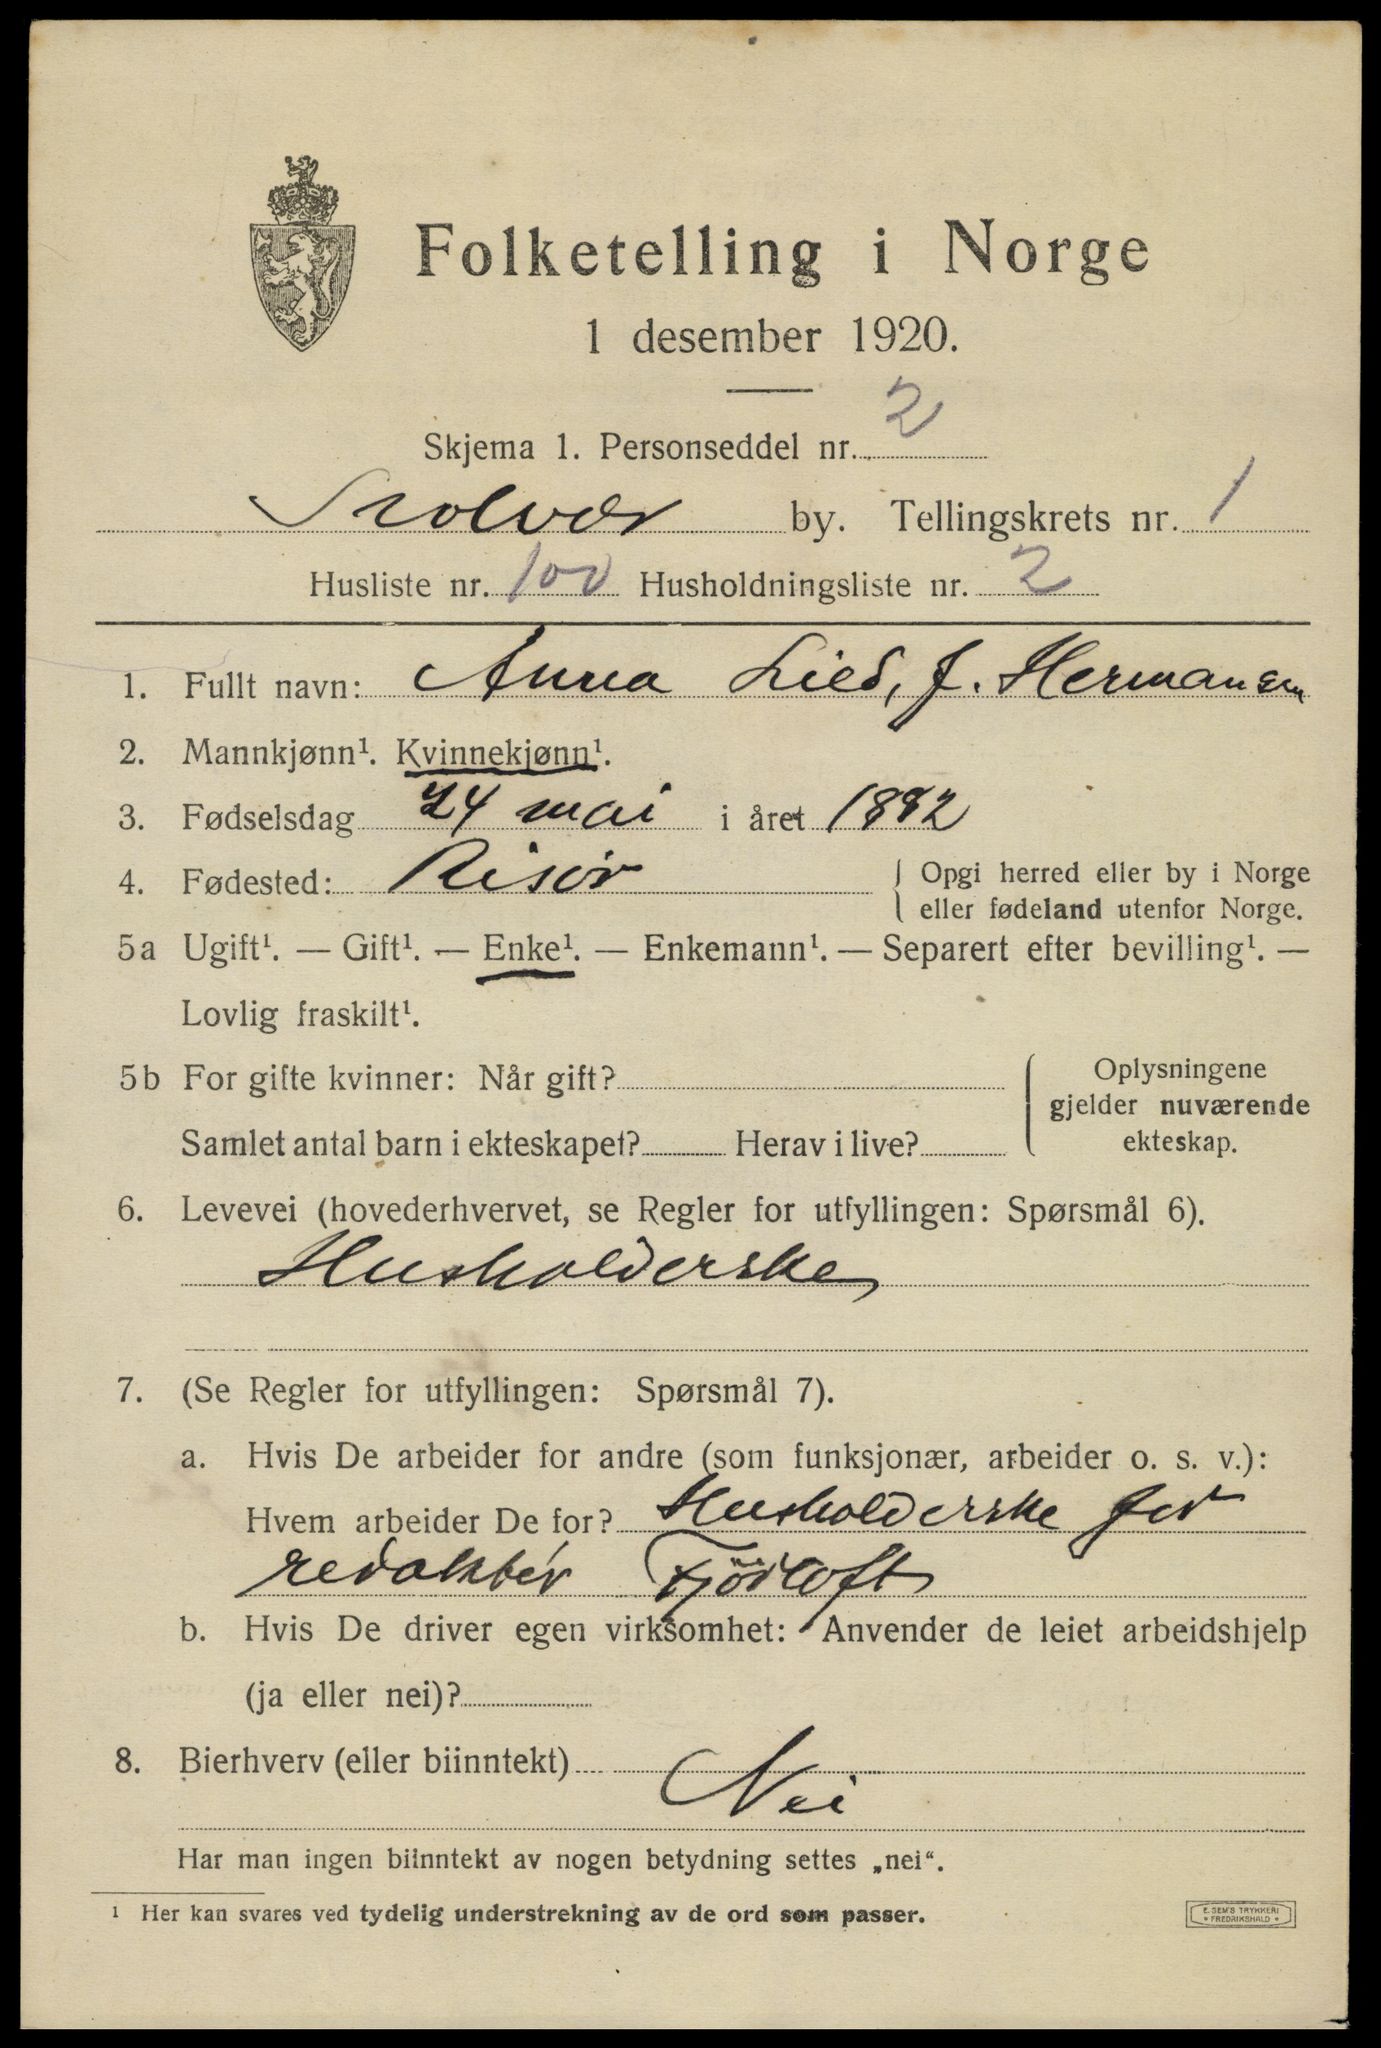 Folketelling i Norge
1 desember 1920.
Skjema 1. Personseddel nr. 2
Svolvær by. Tellingskrets nr. 1
Husliste nr. 100 Husholdningsliste nr. 2
1. Fullt navn: Anna Lied, f. Hermansen
2. Mannkjønn¹. Kvinnekjønn¹.
3. Fødselsdag 24 mai i året 1882
4. Fødested: Risör { Opgi herred eller by i Norge
eller fødeland utenfor Norge.
5a Ugift¹. — Gift¹. — Enke¹. — Enkemann¹. — Separert efter bevilling¹. —
Lovlig fraskilt¹.
5b For gifte kvinner: Når gift? { Oplysningene
gjelder nuværende
Samlet antal barn i ekteskapet? Herav i live? ekteskap.
6. Levevei (hovederhvervet, se Regler for utfyllingen: Spørsmål 6).
Husholderske
7. (Se Regler for utfyllingen: Spørsmål 7).
a. Hvis De arbeider for andre (som funksjonær, arbeider o. s. v.):
Hvem arbeider De for? Husholderske for
redaktör Fjörtoft
b. Hvis De driver egen virksomhet: Anvender de leiet arbeidshjelp
(ja eller nei)?
8. Bierhverv (eller biinntekt)
Nei
Har man ingen biinntekt av nogen betydning settes „nei“.
1 Her kan svares ved tydelig understrekning av de ord som passer.
E. SEM'S TRYKKERI
* FREDRIKSHALD *